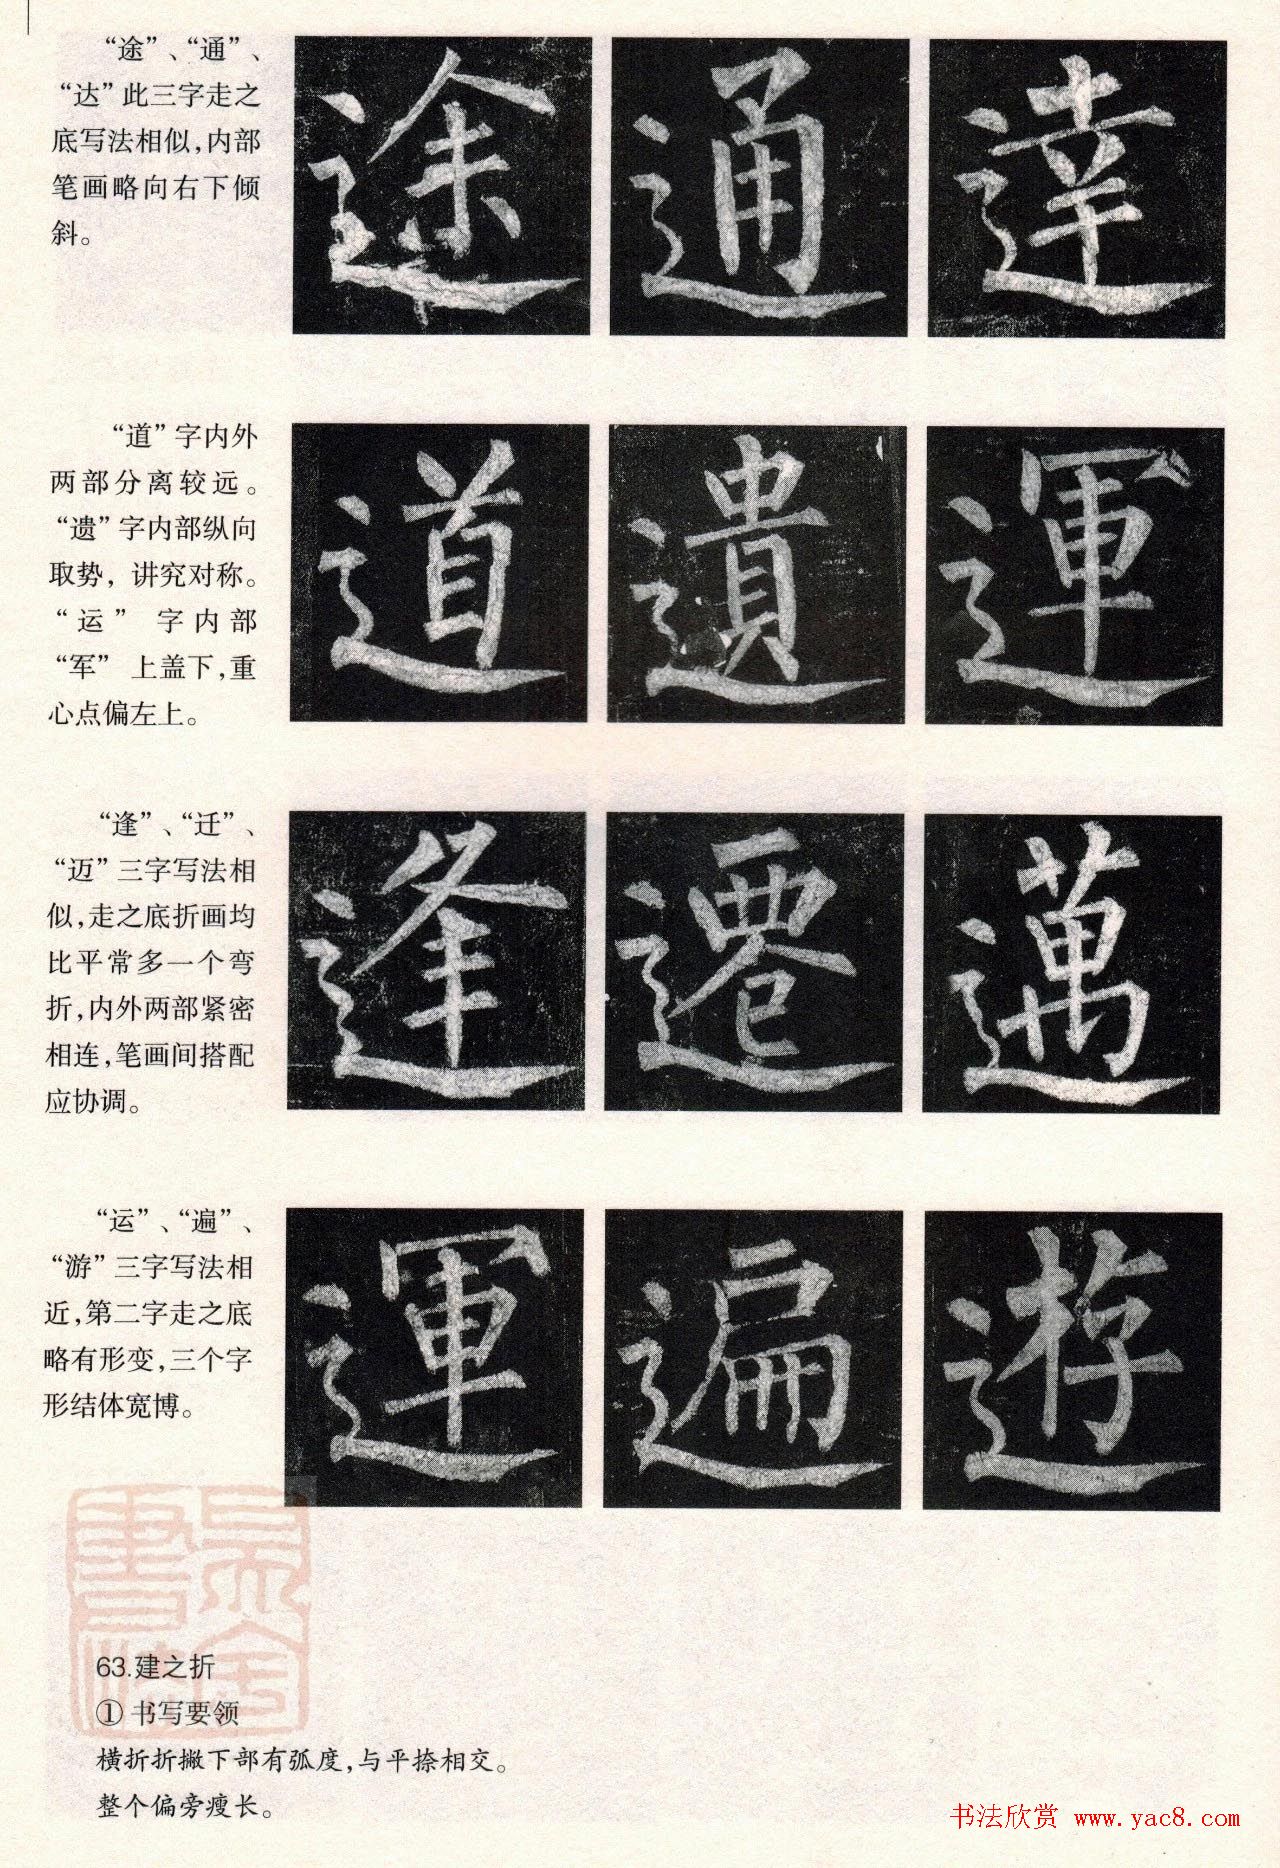 “途”、“通”、
“达”此三字走之
底写法相似,内部
笔画略向右下倾
斜。
途 通 達
“道”字内外
两部分离较远。
“遗”字内部纵向
取势,讲究对称。
“运”字内部
“军”上盖下,重
心点偏左上。
道 遺 運
“逢”、“迁”、
“迈”三字写法相
似,走之底折画均
比平常多一个弯
折,内外两部紧密
相连,笔画间搭配
应协调。
逢 遷 邁
“运”、“遍”、
“游”三字写法相
近,第二字走之底
略有形变,三个字
形结体宽博。
運 遍 遊
63.建之折
① 书写要领
横折折撇下部有弧度,与平捺相交。
整个偏旁瘦长。
书法欣赏 www.yac8.com